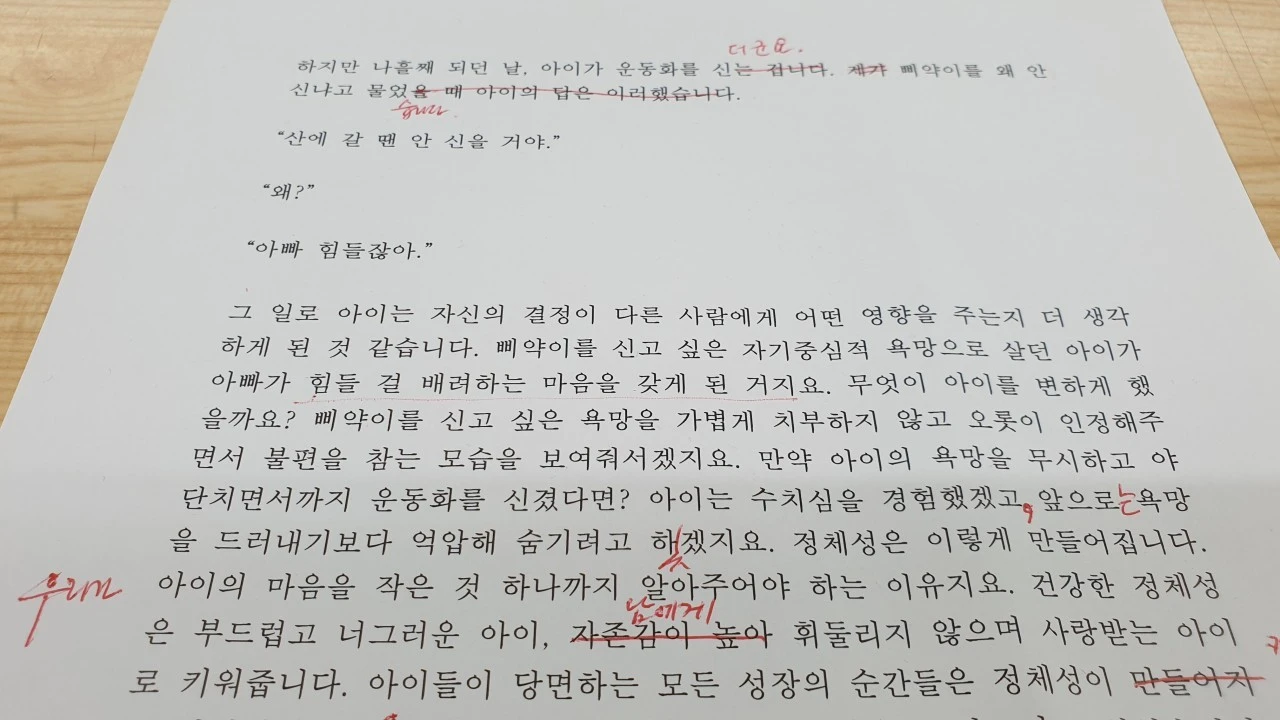 더군요.
하지만 나흘째 되던 날, 아이가 운동화를 신는 겁니다. 제가 삐약이를 왜 안
신냐고 물었을 때 아이의 답은 이러했습니다.
습니다.
“산에 갈 땐 안 신을 거야.”
“왜?”
“아빠 힘들잖아.”
그 일로 아이는 자신의 결정이 다른 사람에게 어떤 영향을 주는지 더 생각
하게 된 것 같습니다. 삐약이를 신고 싶은 자기중심적 욕망으로 살던 아이가
아빠가 힘들 걸 배려하는 마음을 갖게 된 거지요. 무엇이 아이를 변하게 했
을까요? 삐약이를 신고 싶은 욕망을 가볍게 치부하지 않고 오롯이 인정해주
면서 불편을 참는 모습을 보여줘서겠지요. 만약 아이의 욕망을 무시하고 야
단치면서까지 운동화를 신겼다면? 아이는 수치심을 경험했겠고, 앞으로는 욕망
을 드러내기보다 억압해 숨기려고 했겠지요. 정체성은 이렇게 만들어집니다.
우리가 아이의 마음을 작은 것 하나까지 알아주어야 하는 이유지요. 건강한 정체성
남에게
은 부드럽고 너그러운 아이, 자존감이 높아 휘둘리지 않으며 사랑받는 아이
로 키워줍니다. 아이들이 당면하는 모든 성장의 순간들은 정체성이 만들어지